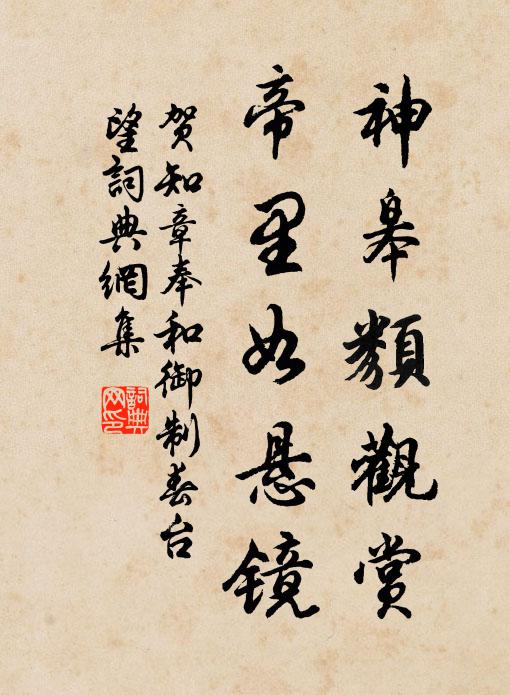 神皋類觀賞
帝里如悬镜
贺知章奉和御制春台
望詞典網集
詞典
网印